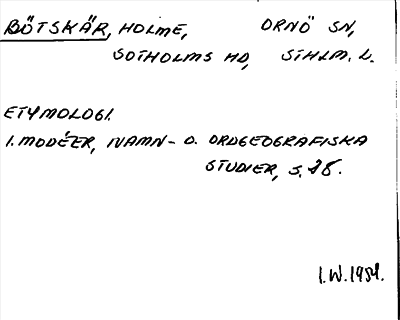 BÖTSKÄR, HOLME, ORNÖ SN,
SOTHOLMS HD, STHLM. L.
ETYMOLOGI.
I. MODÉER, NAMN- O. ORDGEOGRAFISKA
STUDIER, S. 78.
I.W. 1954.